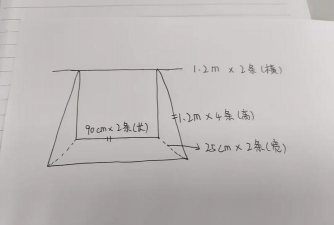 1.2m × 2条(横)
90cm×2条(长)
=1.2m×4条(高)
25cm×2条(宽)